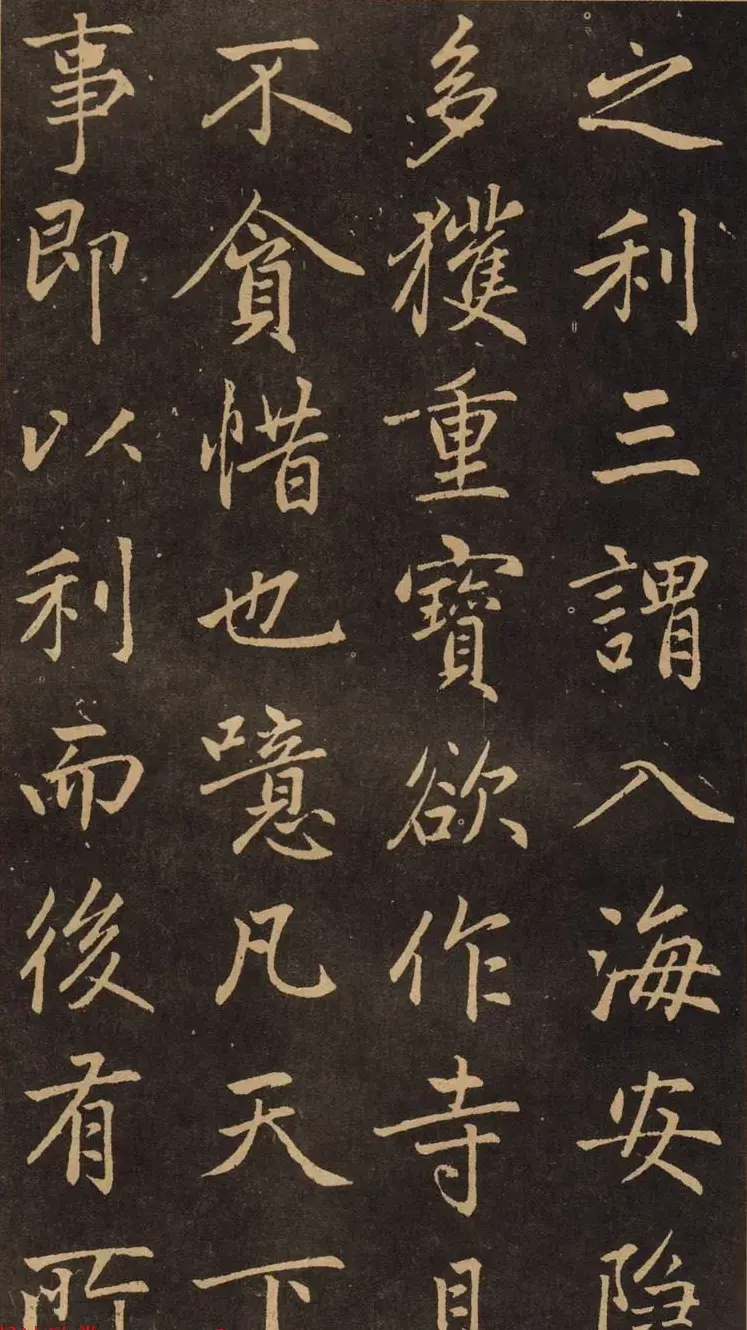 之利三謂入海安隐
多獲重寶欲作寺
不貪惜也噫凡天下
事即以利而後有所